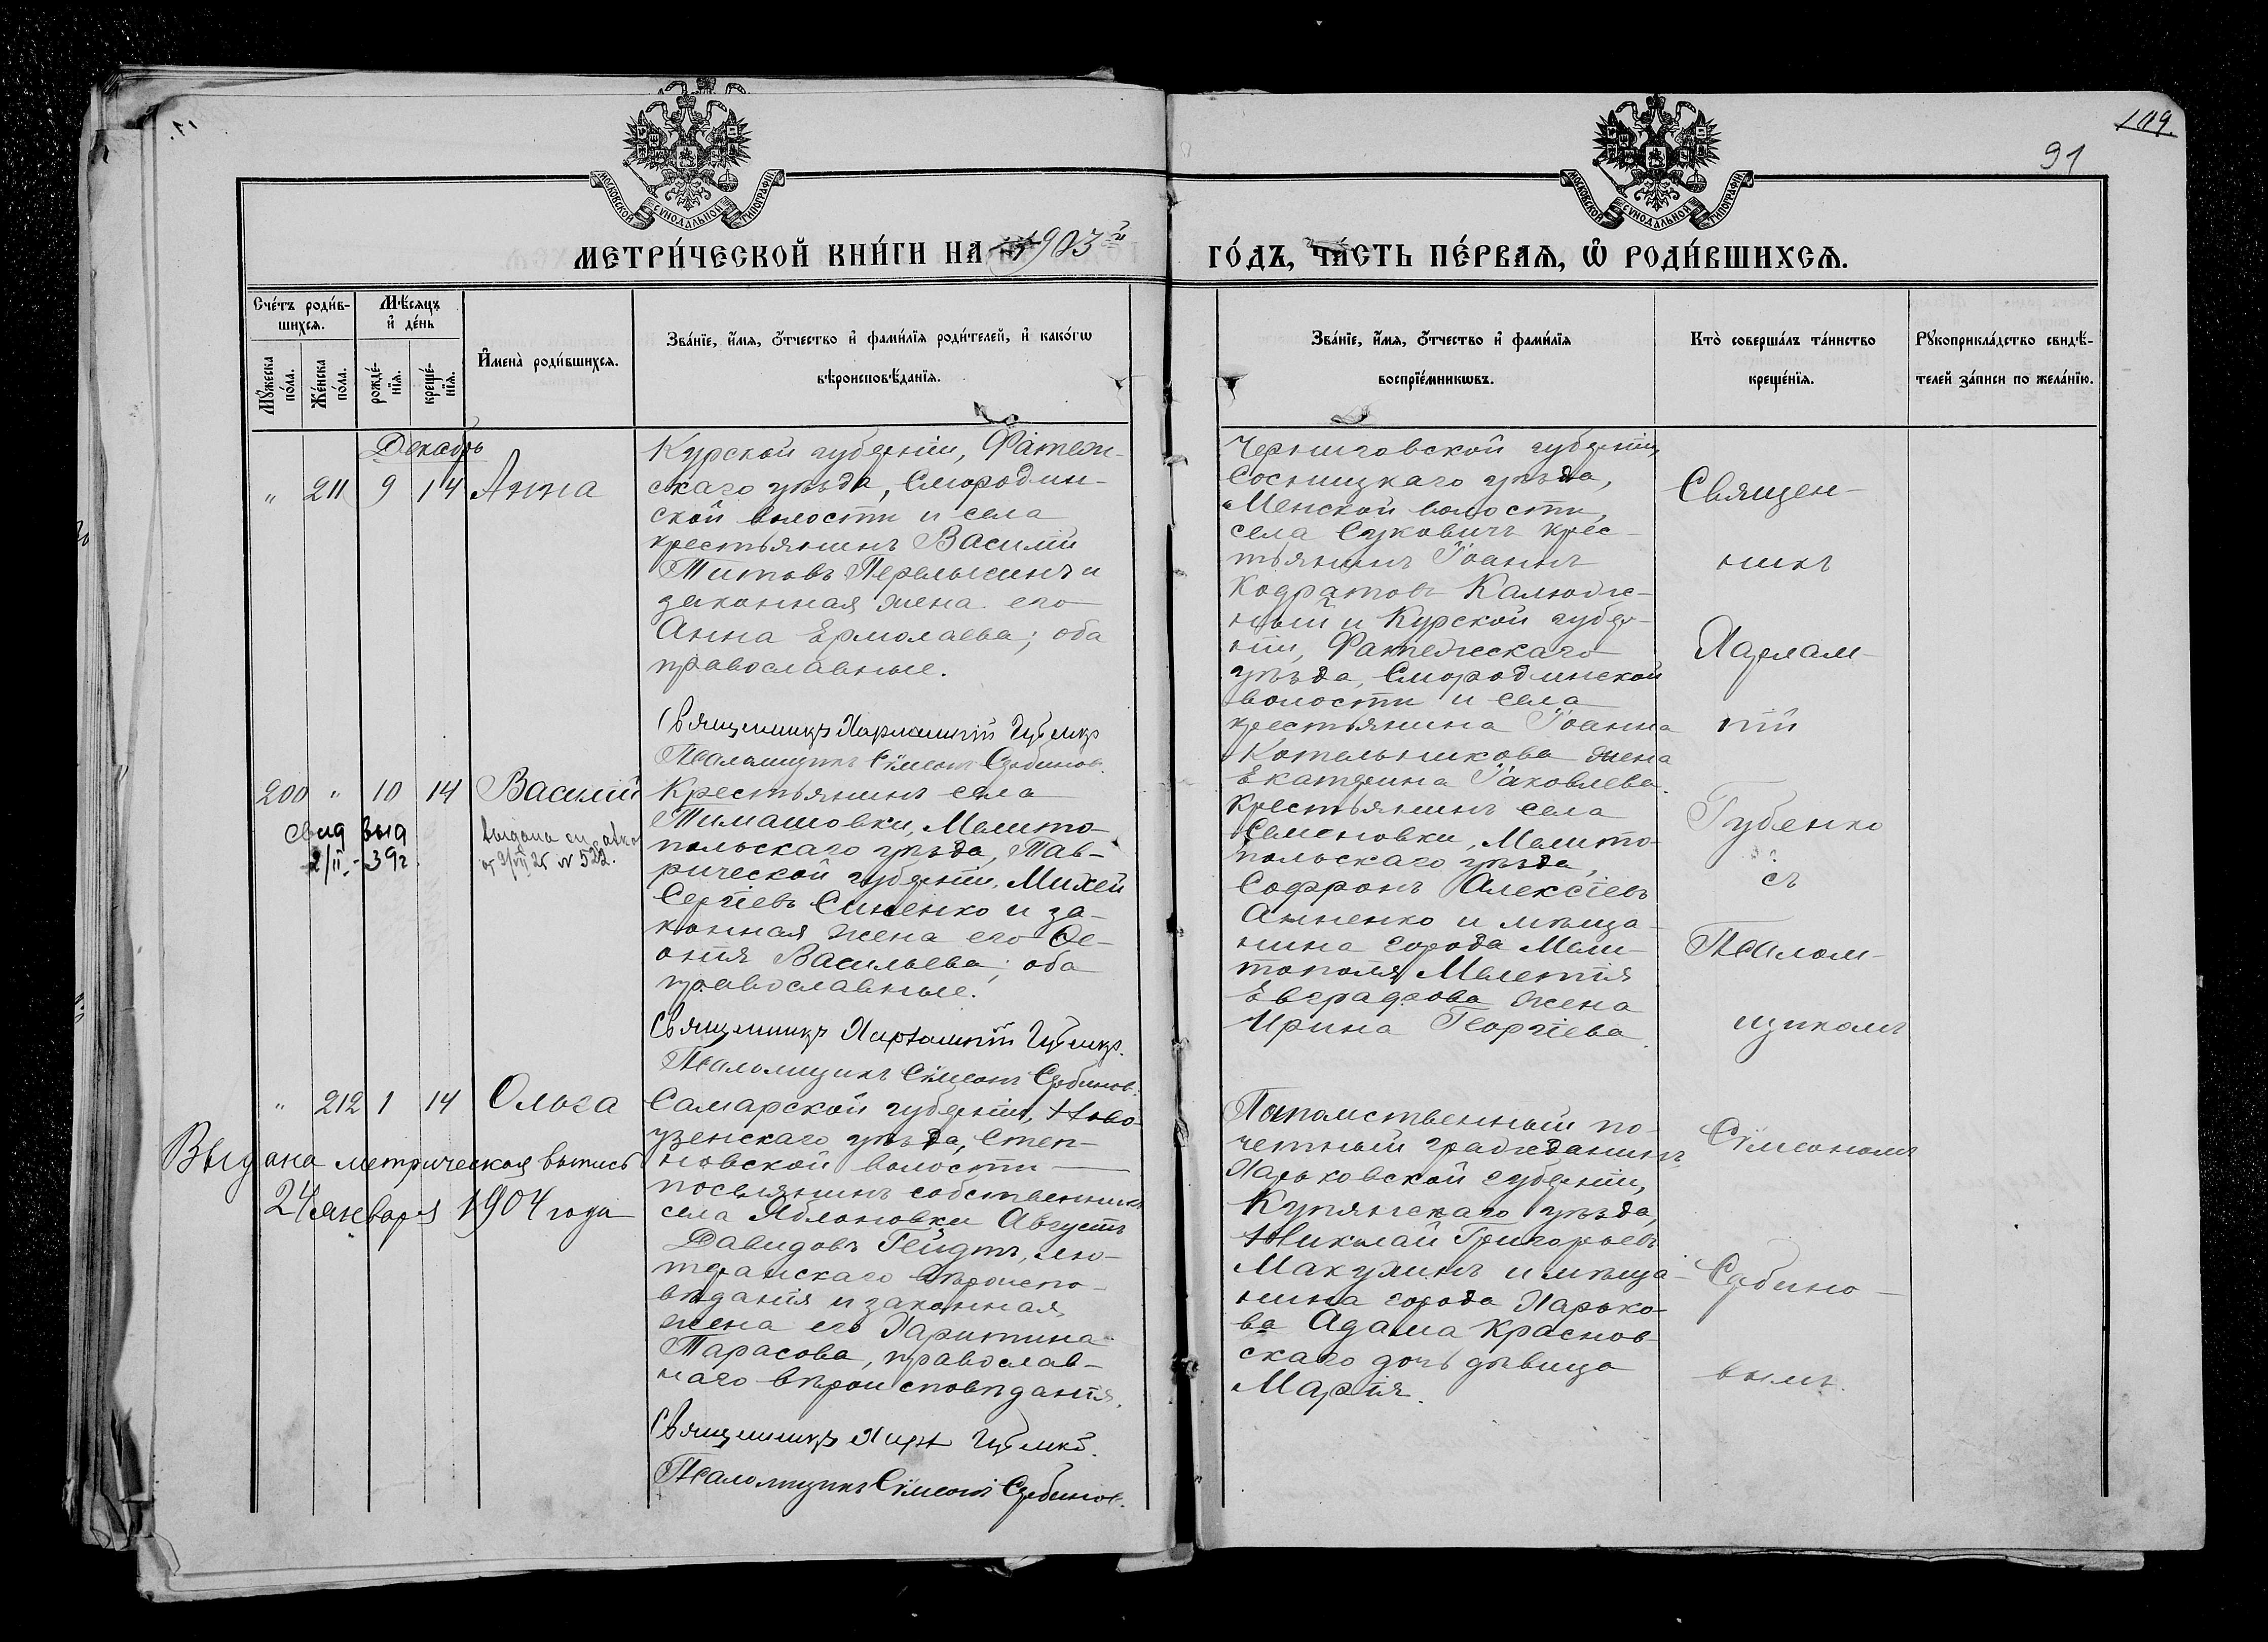 109.
91
МОСКОВСКОЙ СѴНОДАЛЬНОЙ ТИПОГРАФІИ
МОСКОВСКОЙ СѴНОДАЛЬНОЙ ТИПОГРАФІИ
МЕТРИ́ЧЕСКОЙ КНИ́ГИ НА 1903й ГО́ДЪ, ЧА́СТЬ ПЕ́РВАѦ, Ѡ҆ РОДИ́ВШИХСѦ.
Сче́тъ роди́в-
шихсѧ.
Мꙋ́жеска
по́ла.
Же́нска
по́ла.
Мѣ́сѧцъ
и҆ де́нь
рожде́-
нїѧ.
креще́-
нїѧ.
И҆мена̀ роди́вшихсѧ.
Зва́нїе, и҆́мѧ, ѻ҆́тчество и҆ фами́лїѧ роди́телей, и҆ како́гѡ
вѣроисповѣ́данїѧ.
Зва́нїе, и҆́мѧ, ѻ҆́тчество и҆ фами́лїѧ
воспрїе́мникѡвъ.
Кто̀ соверша́лъ та́инство
креще́нїѧ.
Рꙋкоприкла́дство свидѣ́-
телей за́писи по жела́нїю.
Декабрь
" 211 9 14 Анна
Курской губерніи, Фатеж-
скаго уѣзда, Смородин-
ской волости и села
крестьянинъ Василій
Титовъ и
законная жена его
Анна Ермолаева; оба
православные.
Священникъ Харлампій Губенко
Псаломщикъ Сѵмеонъ Сербиновъ.
Черниговской губерніи,
Сосницкаго уѣзда,
Менской волости,
села крес-
тьянинъ Іоаннъ
Кодратовъ Калюж-
ный и Курской губер-
ніи, Фатежскаго
уѣзда, Смородинской
волости и села
крестьянина Іоанна
Котельникова жена
Екатерина Іаковлева.
200 " 10 14 Василій
свид выд
2/II - 39г.
выдана справка
№ 522.
Крестьянинъ села
Тимашовки, Мелито-
польскаго уѣзда, Тав-
рической губерніи, Михей
Сергіевъ Синенко и за-
конная жена его Ѳе-
онія Васильева; оба
православные.
Священникъ Харлампій Губенко.
Псаломщикъ Сѵмеонъ Сербиновъ.
Крестьянинъ села
Семеновки, Мелито-
польскаго уѣзда,
Софронъ Алексіевъ
Анненко и мѣща-
нина города Мели-
тополя Мелетія
Евграфова жена
Ирина Георгіева.
" 212 1 14 Ольга
Выдана метрическая выпись
24 января 1904 года
Самарской губерніи, Ново-
узенскаго уѣзда, Степ-
новской волости
поселянинъ собственникъ
села Яблоновки Августъ
Давидовъ Гейдтъ, лю-
теранскаго вѣроиспо-
вѣданія и законная
жена его Харитина
Тарасова, православ-
наго вѣроисповѣданія.
Священникъ Харл Губенко.
Псаломщикъ Сѵмеонъ Сербиновъ.
Потомственный по-
четный гражданинъ
Харьковской губерніи,
Купянскаго уѣзда,
Николай Григорьевъ
Макухинъ и мѣща-
нина города Харько-
ва Адама Краснов-
скаго дочь дѣвица
Марія.
Священ-
никъ
Харлам-
пій
Губенко
съ
Псалом-
щикомъ
Сѵмеономъ
Сербино-
вымъ.